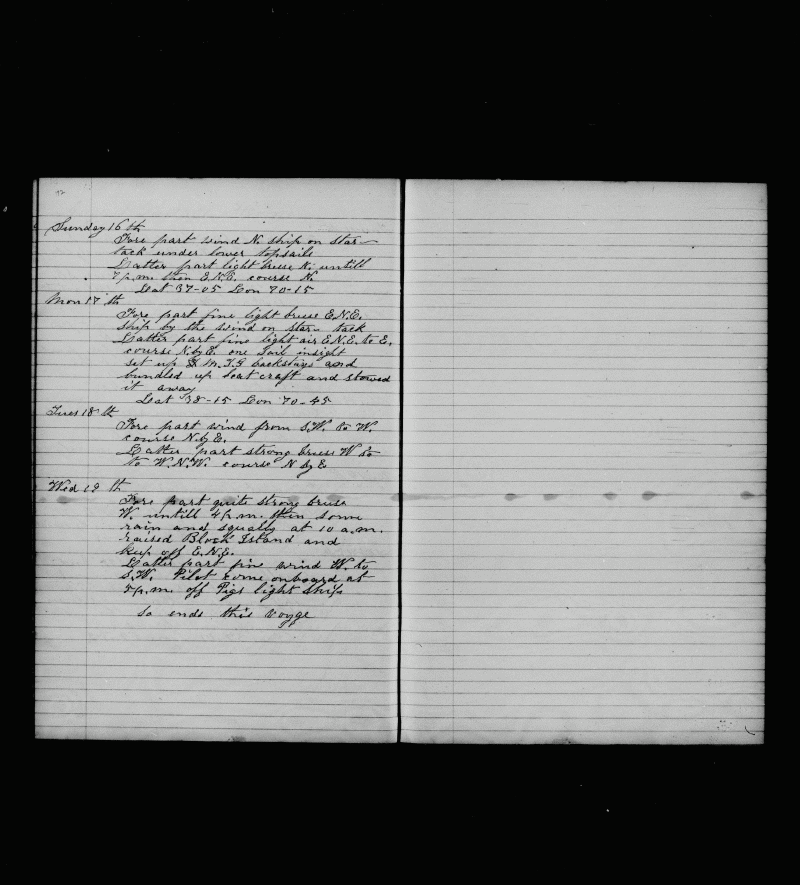 Sunday 16 th
Fore part wind N. ship on star-
tack under lower topsails
Latter part light breese N. untill
p.m. then E.N.E. course N.
Lat 37-05 Lon 70-15
Mon 17 th
Fore part fine light breese E.N.E.
ship by the wind on star- tack
Latter part fine light air E.N.E. to E.
course N.byE. one sail insight
set up M.T.G backstays and
bundled up boat craft and stowed
it away
Lat 38-15 Lon 70-45
Tues 18 th
Fore part wind from S.W. to W.
course N.byE.
Latter part strong breese W to
to W.N.W. course N by E
Wed 19 th
Fore part quite strong breese
W. untill 4p.m. then some
rain and squally at 10 a.m.
raised Block Island and
kep off E.N.E.
Latter part fine wind W. to
S.W. Pilot come onboard at
p.m. off Pigs light ship
so ends this voyge